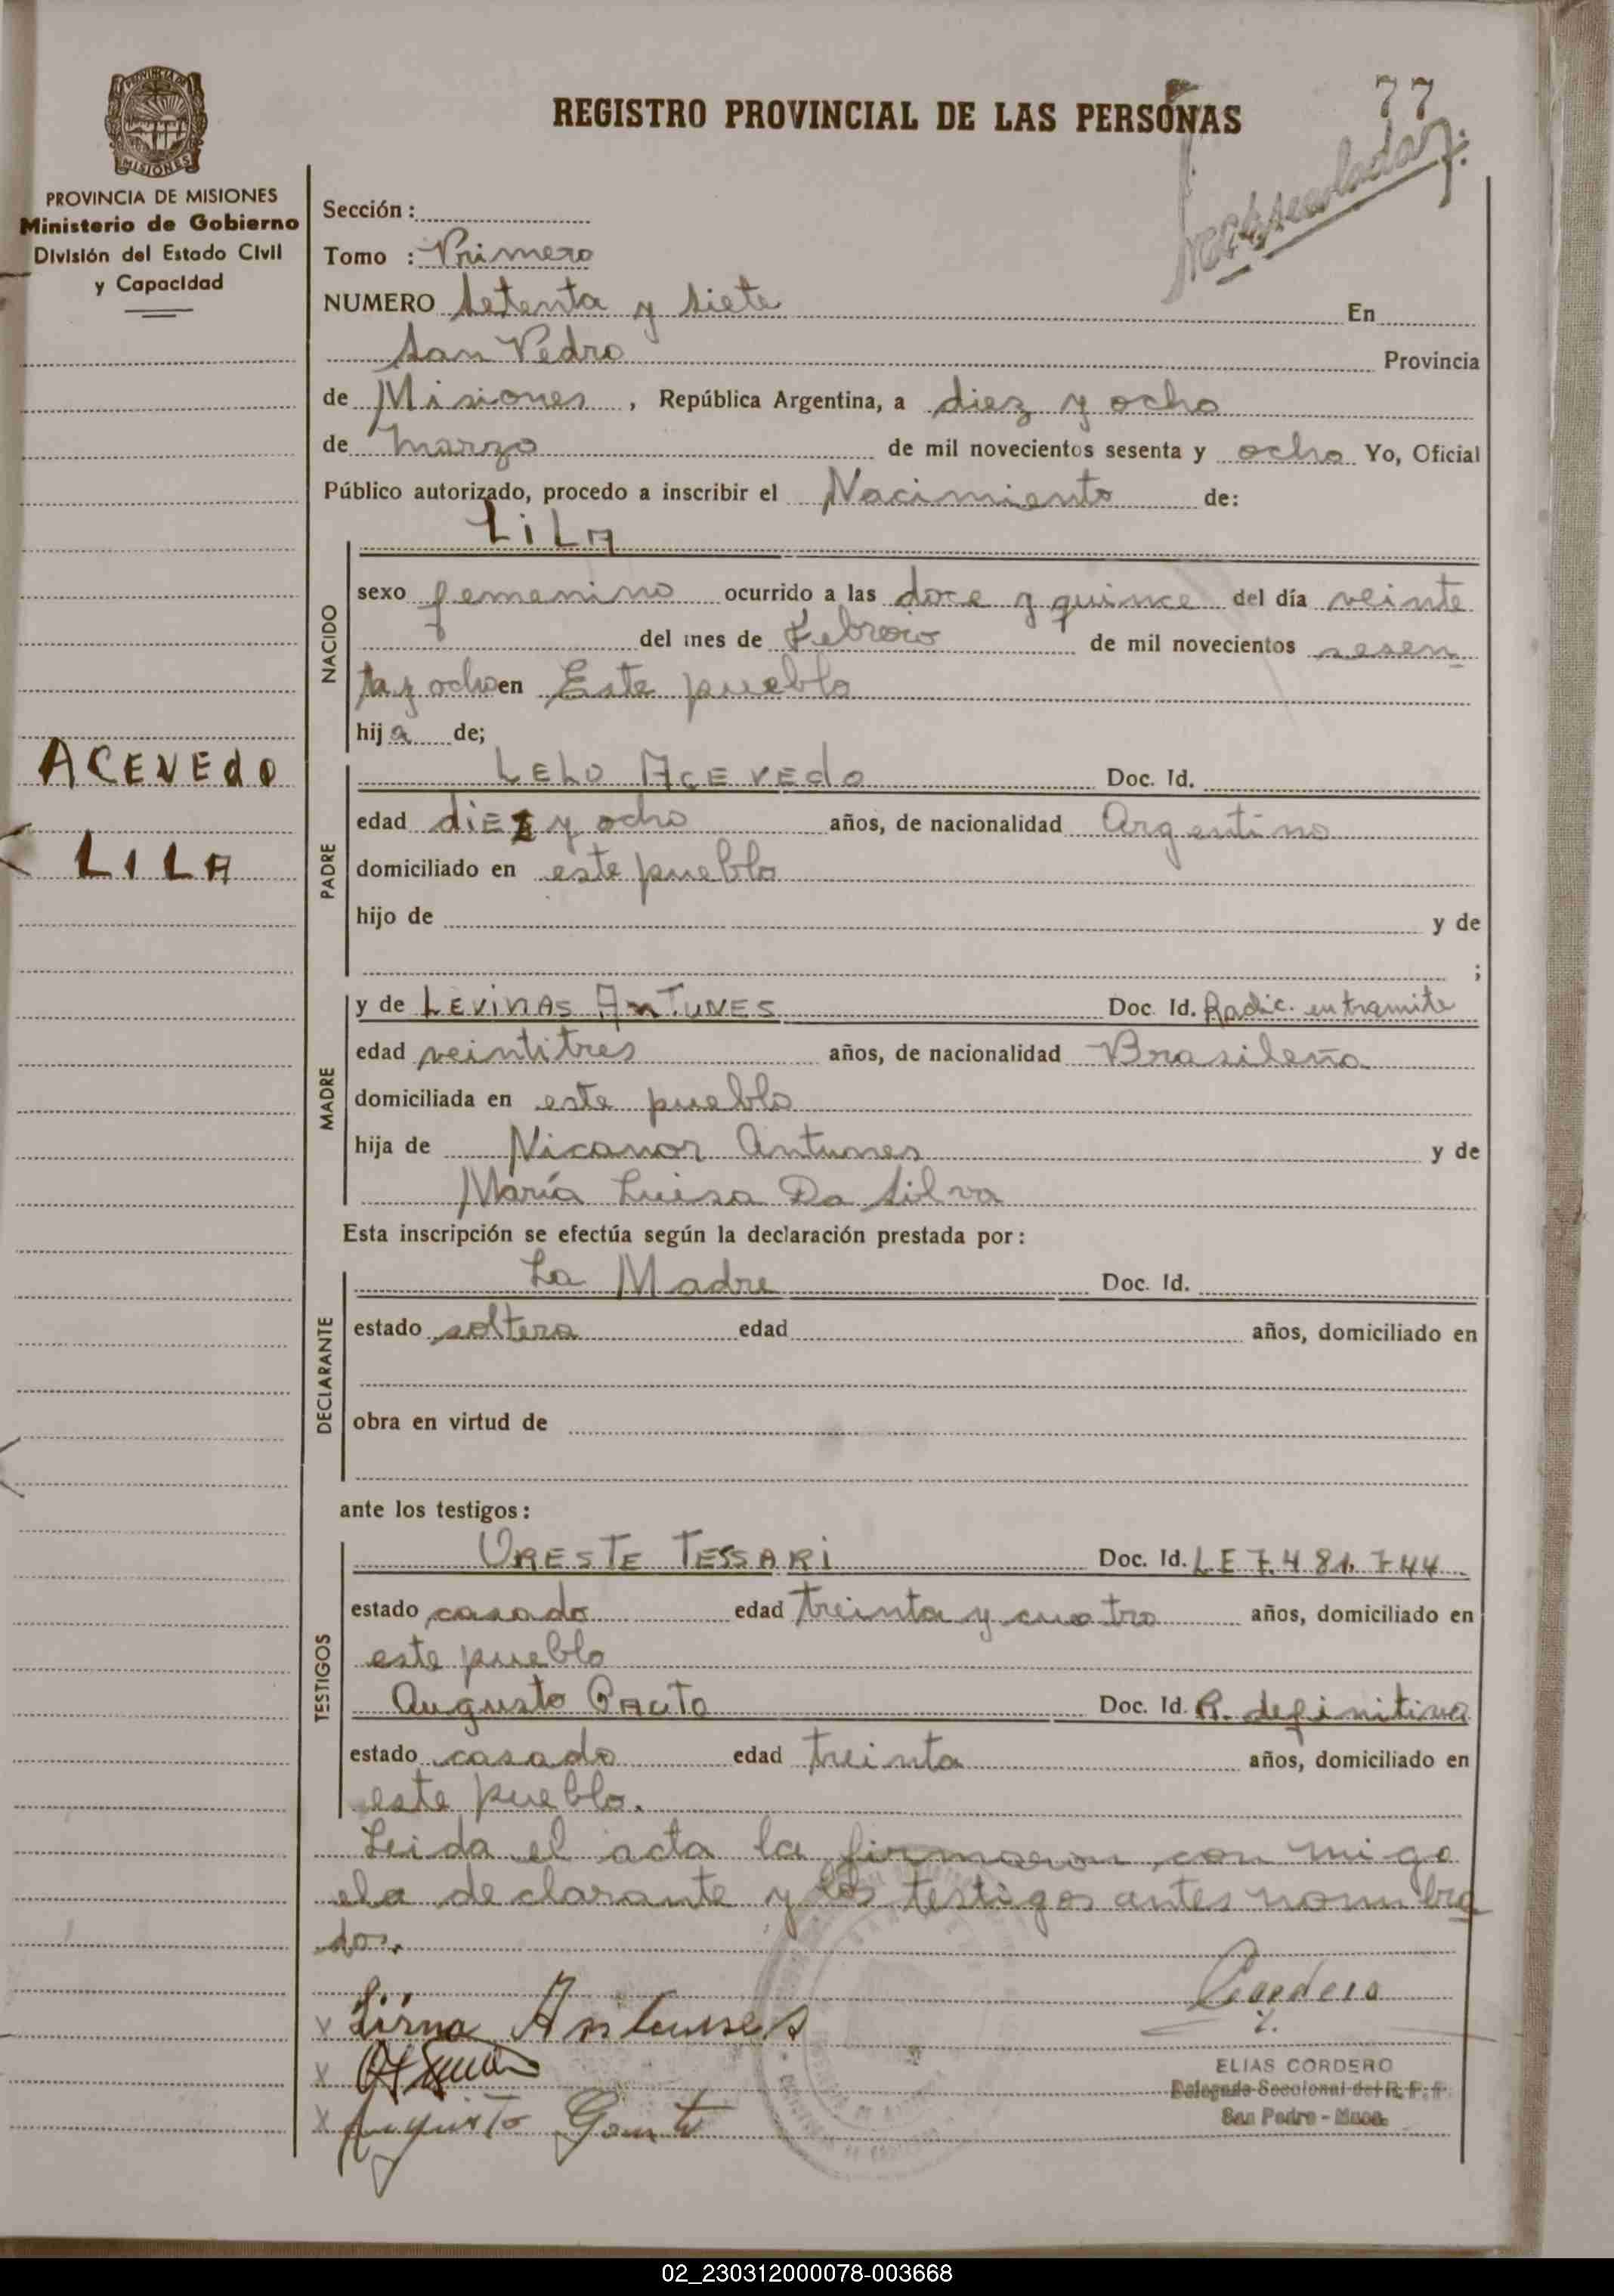 77
REGISTRO PROVINCIAL DE LAS PERSONAS
PROVINCIA DE
MISIONES
PROVINCIA DE MISIONES
Ministerio de Gobierno
División del Estado Civil
y Capacidad
ACEVEDO
LILA
Sección:
Tomo : Primero
NUMERO Setenta y siete En
San Pedro Provincia
de Misiones, República Argentina, a diez y ocho
de marzo de mil novecientos sesenta y ocho Yo, Oficial
Público autorizado, procedo a inscribir el Nacimiento de:
LiLA
NACIDO
sexo femenino ocurrido a las doce y quince del día veinte
del mes de Febrero de mil novecientos sesen
ta y ocho en Este pueblo
hija de;
PADRE
LELO ACEVEdo Doc. Id.
edad diez y ocho años, de nacionalidad Argentino
domiciliado en este pueblo
hijo de y de
;
MADRE
y de LEViNAS AnTUNES Doc. Id. Radic. en tramite
edad veintitres años, de nacionalidad Brasileña
domiciliada en este pueblo
hija de Nicanor Antunes y de
María Luisa Da Silva
Esta inscripción se efectúa según la declaración prestada por:
DECLARANTE
La Madre Doc. Id.
estado soltera edad años, domiciliado en
obra en virtud de
ante los testigos:
TESTIGOS
ORESTE TESSARi Doc. Id. LE 7.481.744
estado casado edad treinta y cuatro años, domiciliado en
este pueblo
Augusto Doc. Id. R. definitiva
estado casado edad treinta años, domiciliado en
este pueblo.
Leida el acta la firmaron con migo
la declarante y los testigos antes nombra
dos.
Antunes
Cordero
ELIAS CORDERO
Delegado Seccional del R. P. P.
San Pedro - Mnes.
02_230312000078-003668